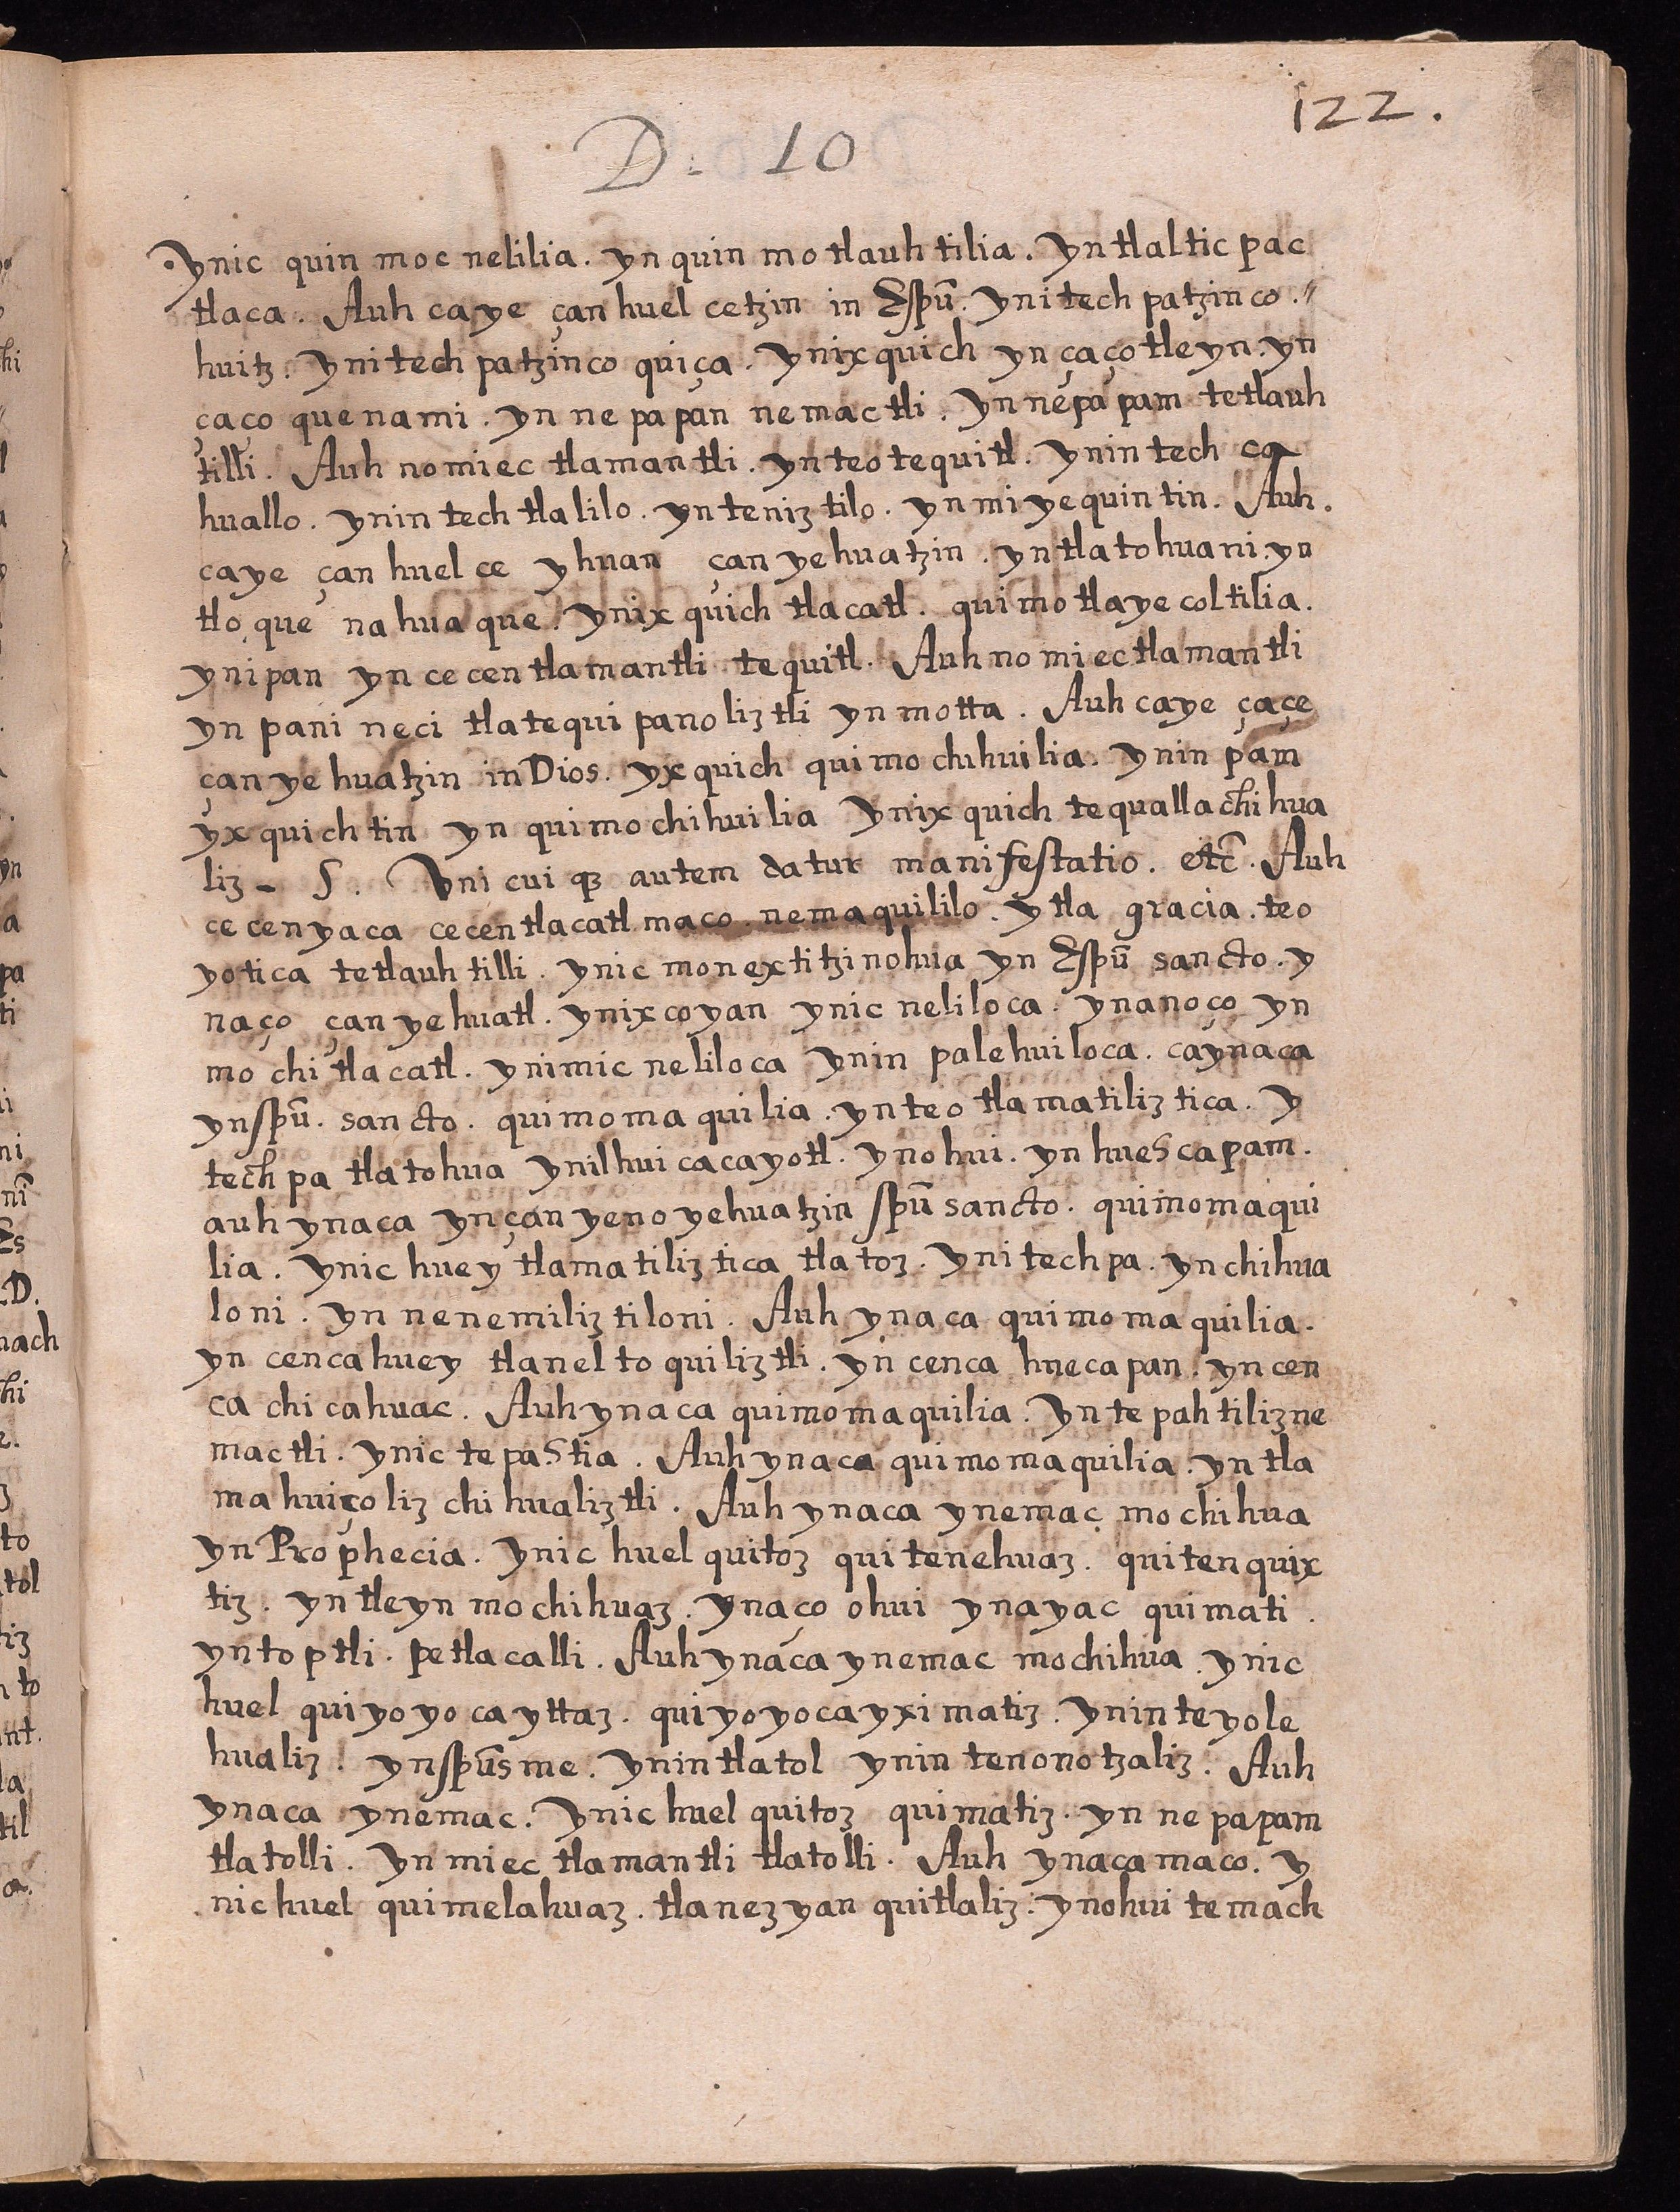 122.
D. 10
ynic quin moc nelilia. yn quin mo tlauh tilia. yn tlaltic pac
tlaca. Auh ca ye çan huel cetzin in Espũ. yni tech patzin co."
huitz. yni tech patzinco quiça. ynix quich yn çaço tleyn. yn
çaço quenami. yn ne pa pan nemactli. yn nepa pam tetlauh
tilli. Auh no miec tlamantli. yn teo tequitl. ynin tech ca
huallo. ynin tech tlalilo. yn teniz tilo. yn mi yequin tin. Auh.
caye çan huel ce yhuan çan yehuatzin. yn tlatohuani. yn
tlo que na hua que. ynix quich tlacatl. qui mo tlaye coltilia.
ynipan yn ce cen tlamantli te quitl. Auh no mi ec tlamantli
yn pani neci tlatequi pano liztli yn motta. Auh caye çaçe
çan ye huatzin in Dios. yx quich qui mo chihuilia. ynin pam
yx quich tin yn qui mo chihuilia ynix quich te qualla chi hua
liz - S. Vni cui qz autem datur manifestatio. etc̃. Auh
ce cen yaca cecen tlacatl maco. nemaquililo. y tla gracia. teo
yotica tetlauh tilli. ynic monextitzinohua yn Espũ sancto. y
naço çan yehuatl. ynix coyan ynic neliloca. ynanoço yn
mo chi tlacatl. ynimic neliloca ynin palehuiloca. caynaca
ynspũ. sancto. quimoma quilia. yn teo tlamatiliz tica. y
tech pa tlatohua ynilhui cacayotl. ynohui. yn huescapam.
auh ynaca yn çan yeno yehuatzin spũ sancto. quimomaqui
lia. ynic huey tlamatiliz tica tlatoz. yni techpa. yn chihua
loni. yn nenemiliz tiloni. Auh ynaca quimoma quilia.
yn cenca huey tlanel to quiliztli. yn cenca hueca pan. yn cen
ca chi cahuac. Auh ynaca quimoma quilia. yn te pah tiliz ne
mactli. ynic te pastia. Auh ynaca quimomaquilia. yn tla
ma huiçoliz chi hualiztli. Auh ynaca ynemac mochihua
yn Prophecia. ynic huel quitoz qui tenehuaz. quitenquix
tiz. yn tleyn mochihuaz. ynaço ohui ynayac quimati.
yntoptli. petlacalli. Auh ynaca ynemac mochihua. ynic
huel quiyoyo cayttaz. quiyoyocayxi matiz. ynin teyole
hualiz. ynspũs me. ynin tlatol ynin tenonotzaliz. Auh
ynaca ynemac. ynic huel quitoz quimatiz. yn ne papam
tlatolli. yn miec tlamantli tlatolli. Auh ynaca maco. y
nic huel quimelahuaz. tlanez yan quitlaliz. ynohui temach